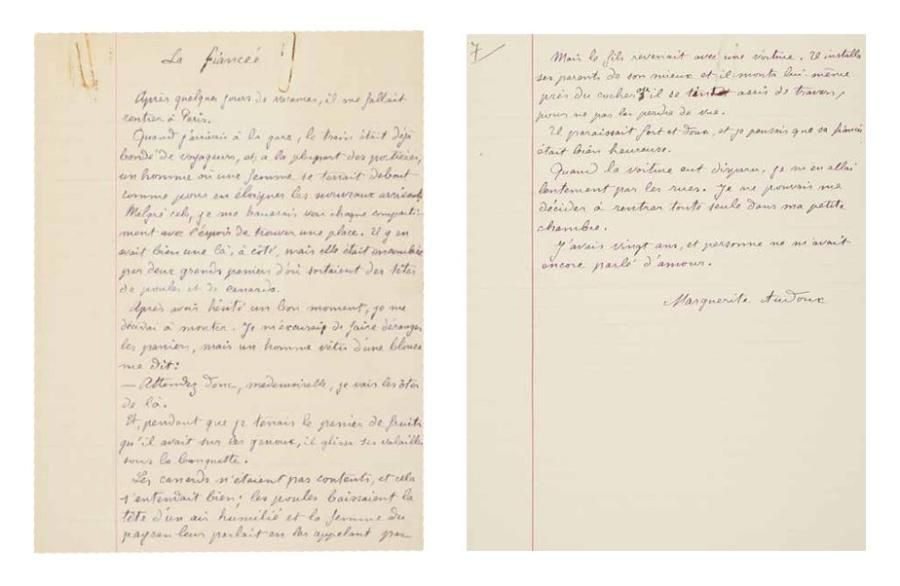 La fiancée
Après quelques jours de vacances, il me fallait
rentrer à Paris.
Quand j'arrivai à la gare, le train était déjà
bondé de voyageurs, et, à la plupart des portières,
un homme ou une femme se tenait debout
comme pour en éloigner les nouveaux arrivants
Malgré cela, je me haussais vers chaque comparti-
ment avec l'espoir de trouver une place. Il y en
avait bien une là, à côté, mais elle était encombrée
par deux grands paniers d'où sortaient des têtes
de poules et de canards.
Après avoir hésité un bon moment, je me
décidai à monter. Je m'excusais de faire déranger
les paniers, mais un homme vêtu d'une blouse
me dit:
— Attendez donc, mademoiselle, je vais les ôter
de là.
Et, pendant que je tenais le panier de fruits
qu'il avait sur les genoux, il glissa ses volailles
sous la banquette.
Les canards n'étaient pas contents, et cela
s'entendait bien; les poules baissaient la
tête d'un air humilié et la femme du
paysan leur parlait en les appelant par
7/
Mais le fils revenait avec une voiture. Il installa
ses parents de son mieux et il monta lui-même
près du cocher il se assis de travers,
pour ne pas la perdre de vue.
Il paraissait fort et doux, et je pensais que sa fiancée
était bien heureuse.
Quand la voiture eut disparu, je m'en allai
lentement par les rues. Je ne pouvais me
décider à rentrer toute seule dans ma petite
chambre.
J'avais vingt ans, et personne ne m'avait
encore parlé d'amour.
Marguerite Audoux